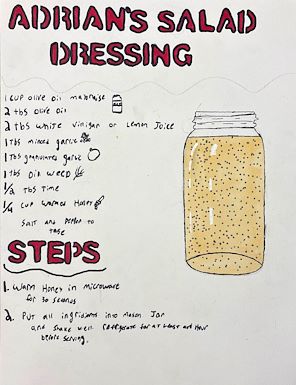 ADRIAN'S SALAD
DRESSING
1 cup olive oil mayonaise
2 tbs olive oil
2 tbs white vinigar or Lemon Juice
1 tbs minced garlic
1 tbs granulated garlic
1 tbs Dill weed
1/2 tbs time
1/4 cup warmed Honey
salt and pepper to
taste
STEPS
1. Warm Honey in microwave
for 30 seconds
2. Put all ingridients into mason Jar
and shake well. refrigerate for at least an Hour
before serving.